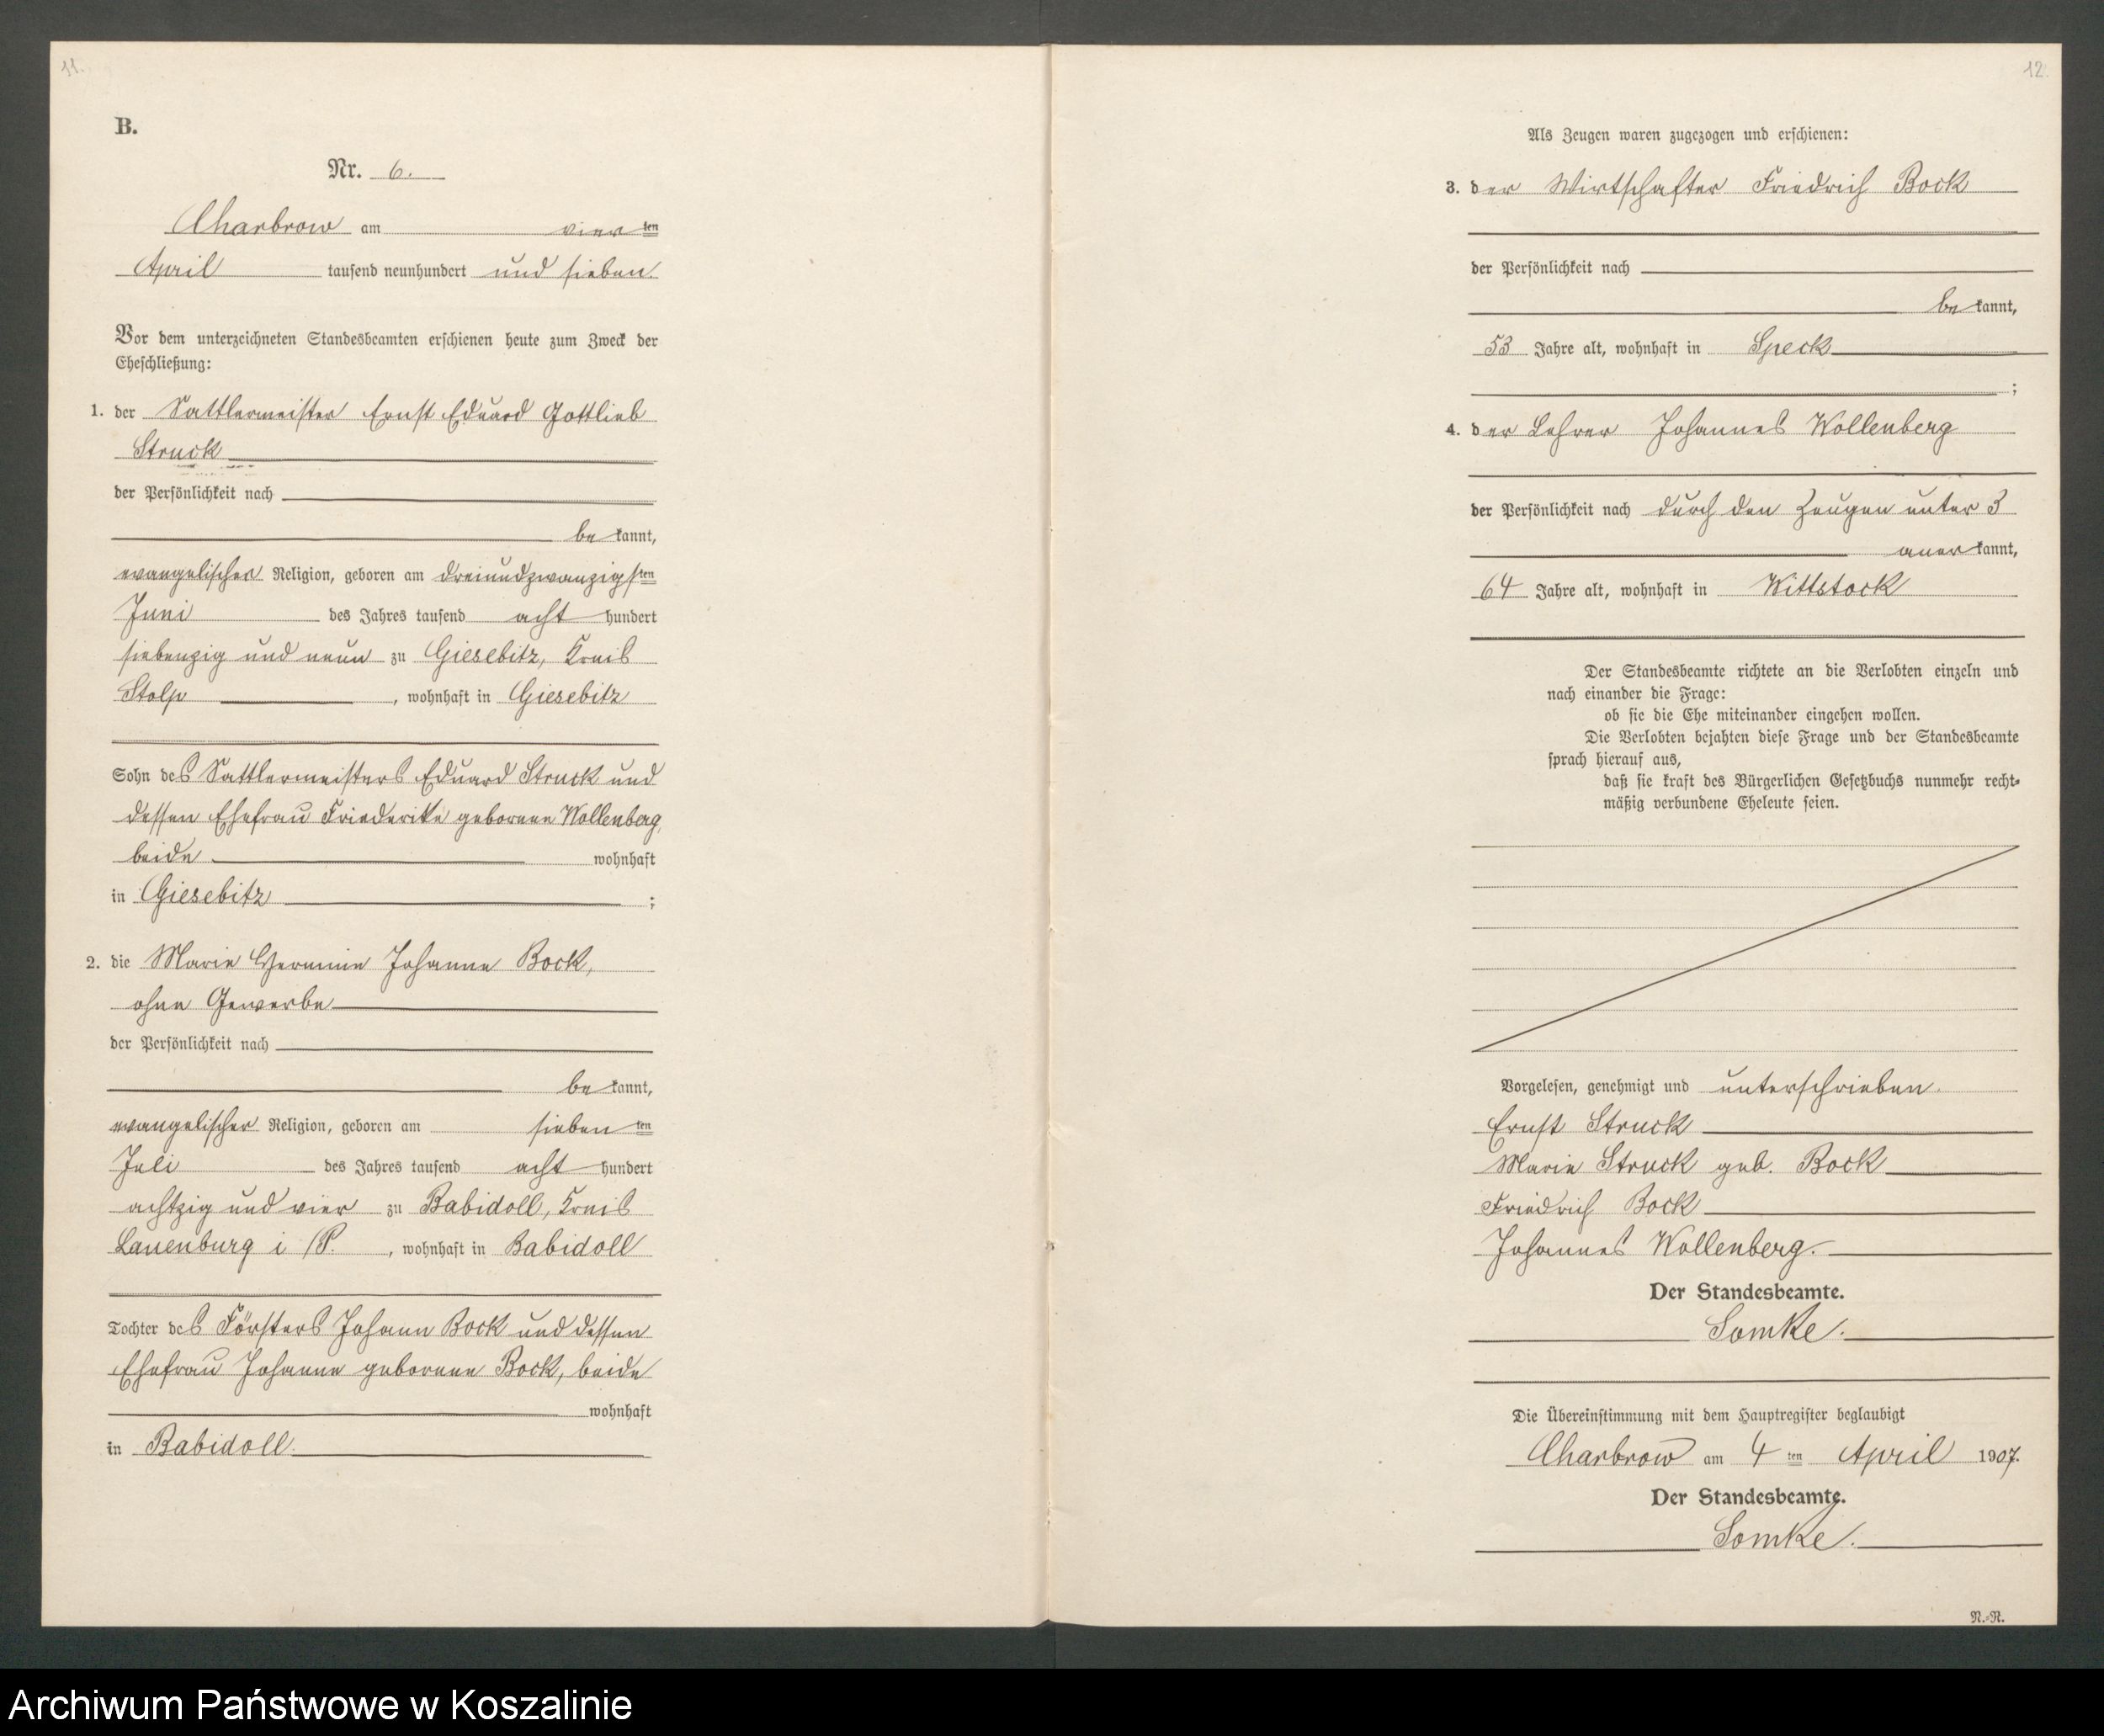 11.
B.
Nr. 6.
Charbrow am vierten
April tausend neunhundert und sieben.
Vor dem unterzeichneten Standesbeamten erschienen heute zum Zweck der
Eheschließung:
1. der Sattlermeister Ernst Eduard Gottlieb
Struck
der Persönlichkeit nach
be kannt,
evangelischer Religion, geboren am dreiundzwanzigsten
Juni des Jahres tausend acht hundert
siebenzig und neun zu Giesebitz, Kreis
Stolp, wohnhaft in Giesebitz
Sohn des Sattlermeisters Eduard Struck und
dessen Ehefrau Friederike geborene Wollenberg,
beide wohnhaft
in Giesebitz ;
2. die Marie Hermine Johanne Bock,
ohne Gewerbe
der Persönlichkeit nach
be kannt,
evangelischer Religion, geboren am siebenten
Juli des Jahres tausend acht hundert
achtzig und vier zu Babidoll, Kreis
Lauenburg i/P., wohnhaft in Babidoll
Tochter des Försters Johann Bock und dessen
Ehefrau Johanne geborene Bock, beide
wohnhaft
in Babidoll.
12.
Als Zeugen waren zugezogen und erschienen:
3. der Wirtschafter Friedrich Bock
der Persönlichkeit nach
be kannt,
53 Jahre alt, wohnhaft in Speck
;
4. der Lehrer Johannes Wollenberg
der Persönlichkeit nach durch den Zeugen unter 3
aner kannt,
64 Jahre alt, wohnhaft in Wittstock
Der Standesbeamte richtete an die Verlobten einzeln und
nach einander die Frage:
ob sie die Ehe miteinander eingehen wollen.
Die Verlobten bejahten diese Frage und der Standesbeamte
sprach hierauf aus,
daß sie kraft des Bürgerlichen Gesetzbuchs nunmehr recht-
mäßig verbundene Eheleute seien.
Vorgelesen, genehmigt und unterschrieben.
Ernst Struck
Marie Struck geb. Bock
Friedrich Bock
Johannes Wollenberg.
Der Standesbeamte.
Somke.
Die Übereinstimmung mit dem Hauptregister beglaubigt
Charbrow am 4ten April 1907.
Der Standesbeamte.
Somke.
N.-R.
Archiwum Państwowe w Koszalinie